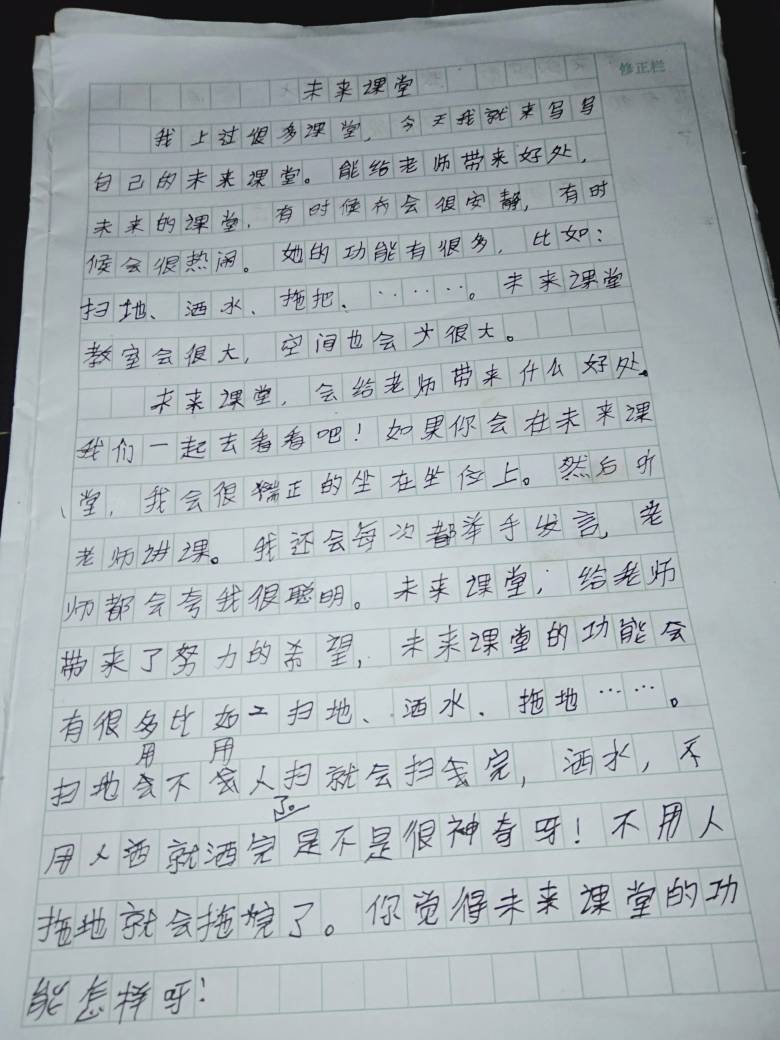 修正栏
未来课堂
我上过很多课堂，今天我就来写写
自己的未来课堂。能给老师带来好处，
未来的课堂，有时候会很安静，有时
候会很热闹。她的功能有很多，比如：
扫地、洒水、拖把、……。未来课堂
教室会很大，空间也会很大。
未来课堂，会给老师带来什么好处。
我们一起去看看吧！如果你会在未来课
堂，我会很端正的坐在坐位上。然后听
老师讲课。我还会每次都举手发言，老
师都会夸我很聪明。未来课堂，给老师
带来了努力的希望，未来课堂的功能会
有很多比如：扫地、洒水、拖地……。
扫地用不用人扫就会扫完，洒水，不
用人洒就洒完了。是不是很神奇呀！不用人
拖地就会拖完了。你觉得未来课堂的功
能怎样呀！